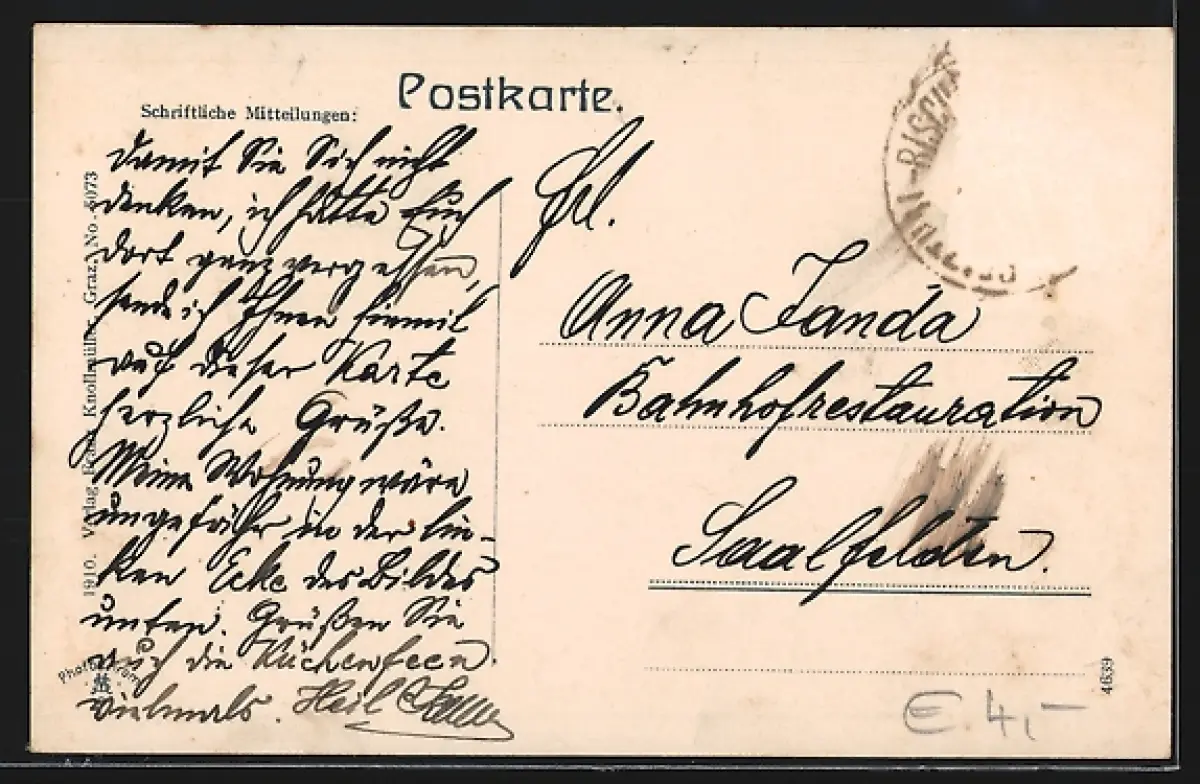 Postkarte.
Schriftliche Mitteilungen:
Damit Sie Sich nicht
denken, ich hätte Euch
dort ganz vergessen,
sende ich Ihnen hiemit
auf dieser Karte
herzliche Grüße.
Meine Wohnung wäre
ungefähr in der lin-
ken Ecke des Bildes
unten. Grüßen Sie
auch die Küchenfeen
vielmals. Heil
Frl.
Anna Janda
Bahnhofrestauration
Saalfelden.
1910. Verlag Knollmüller, Graz. No. 5073
RISSIN
4639
E 4,-